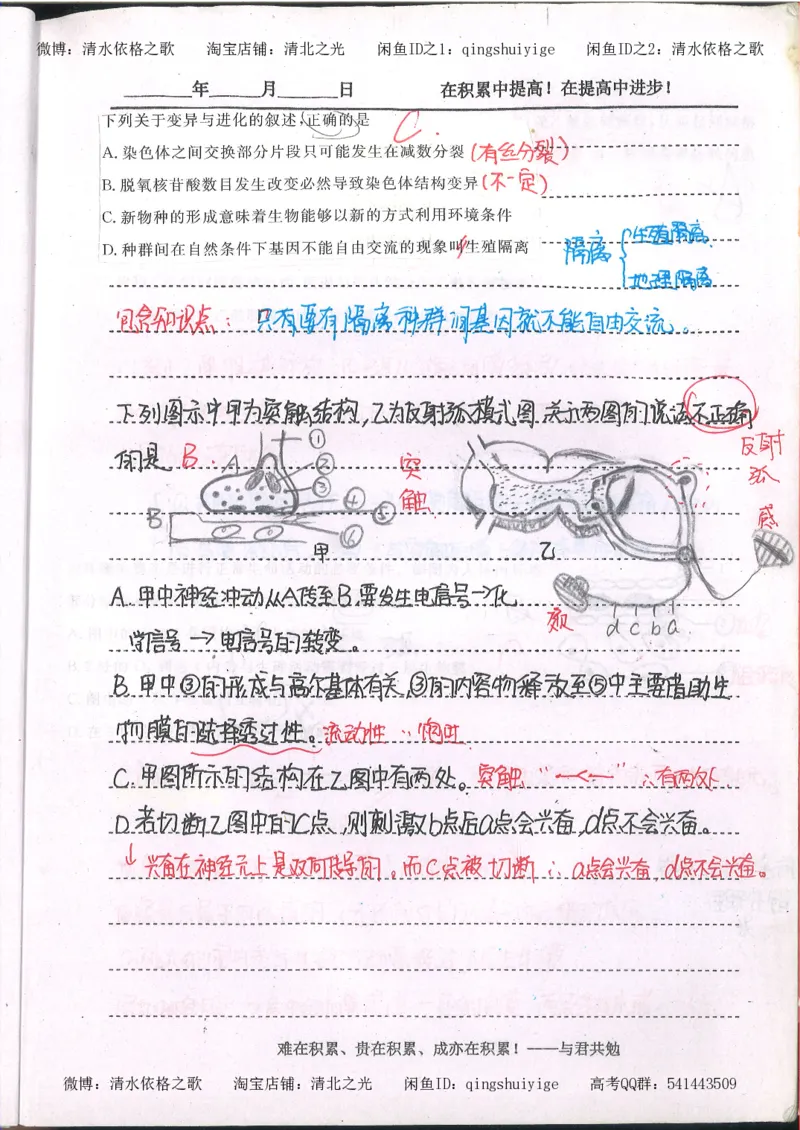 微博：清水依格之歌 淘宝店铺：清北之光 闲鱼ID之1：qingshuiyige 闲鱼ID之2：清水依格之歌
______年____月_____日 在积累中提高！在提高中进步！
下列关于变异与进化的叙述，正确的是 C.
A. 染色体之间交换部分片段只可能发生在减数分裂（有丝分裂）
B. 脱氧核苷酸数目发生改变必然导致染色体结构变异（不一定）
C. 新物种的形成意味着生物能够以新的方式利用环境条件
D. 种群间在自然条件下基因不能自由交流的现象叫生殖隔离
隔离 { 生殖隔离
地理隔离
包含知识点： 只有要有隔离种群间基因就不能自由交流。
下列图示中甲为突触结构，乙为反射弧模式图，关于两图的说法不正确
的是 B
A ① ② ③ ④ ⑤ ⑥ B 甲
突触
乙
反射弧
感
效
d c b a
A. 甲中神经冲动从A传至B，要发生电信号→化
学信号→电信号的转变。
B. 甲中③的形成与高尔基体有关，③的内容物释放至⑤中主要借助生
物膜的选择透过性。流动性 ∵胞吐
C. 甲图所示的结构在乙图中有两处。突触 "—<—<—" ∴有两处
D. 若切断乙图中的C点，则刺激b点后a点会兴奋，d点不会兴奋。
↓兴奋在神经元上是双向传导的。而C点被切断 ∴ a点会兴奋，d点不会兴奋。
难在积累、贵在积累、成亦在积累！——与君共勉
微博：清水依格之歌 淘宝店铺：清北之光 闲鱼ID：qingshuiyige 高考QQ群：541443509